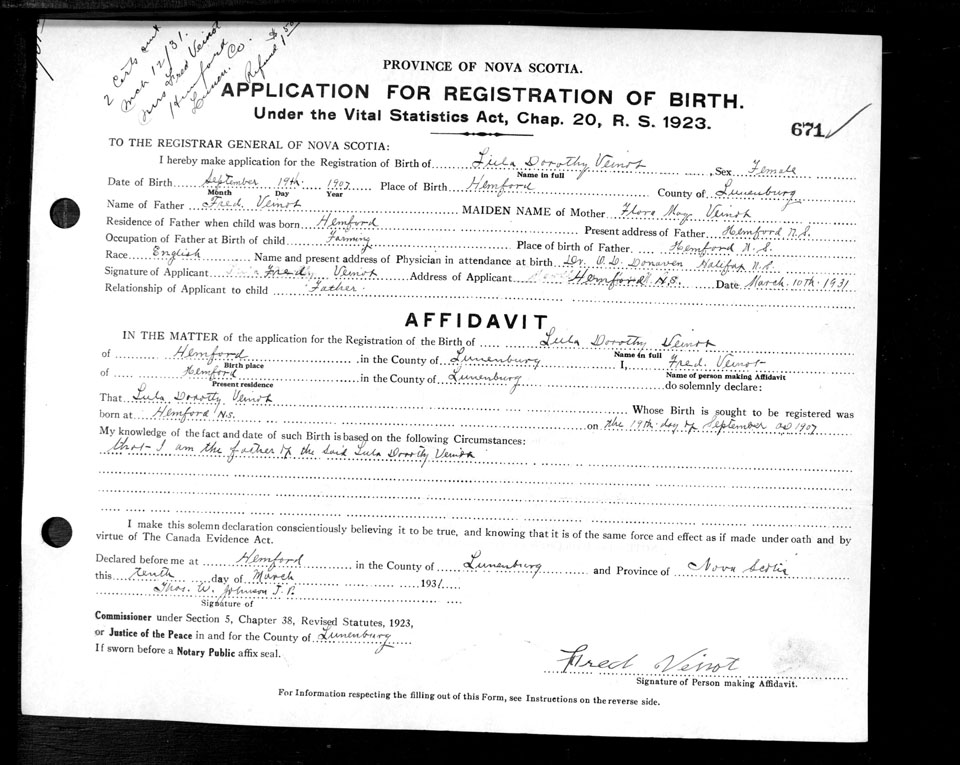 2 Certs sent
Mch 12/31.
Mrs Fred Veinot
Hemford
Lunen. Co.
Refund $1.50
PROVINCE OF NOVA SCOTIA.
APPLICATION FOR REGISTRATION OF BIRTH.
Under the Vital Statistics Act, Chap. 20, R. S. 1923.
671
TO THE REGISTRAR GENERAL OF NOVA SCOTIA:
I hereby make application for the Registration of Birth of Lula Dorothy Veinot, Sex Female
Name in full
Date of Birth September 19th 1907 Place of Birth Hemford County of Lunenburg
Month Day Year
Name of Father Fred. Veinot MAIDEN NAME of Mother Flora May Veinot
Residence of Father when child was born Hemford Present address of Father Hemford N.S.
Occupation of Father at Birth of child Farming Place of birth of Father Hemford N.S.
Race English Name and present address of Physician in attendance at birth Dr. O. D. Donaven Halifax N.S.
Signature of Applicant Fred Veinot Address of Applicant Hemford N.S. Date March 10th 1931
Relationship of Applicant to child Father.
AFFIDAVIT
IN THE MATTER of the application for the Registration of the Birth of Lula Dorothy Veinot
Name in full
of Hemford, in the County of Lunenburg I, Fred. Veinot
Birth place Name of person making Affidavit
of Hemford in the County of Lunenburg do solemnly declare:
Present residence
That Lula Dorothy Veinot Whose Birth is sought to be registered was
born at Hemford N.S. on the 19th day of September AD 1907
My knowledge of the fact and date of such Birth is based on the following Circumstances:
that I am the father of the said Lula Dorothy Veinot
I make this solemn declaration conscientiously believing it to be true, and knowing that it is of the same force and effect as if made under oath and by
virtue of The Canada Evidence Act.
Declared before me at Hemford in the County of Lunenburg and Province of Nova Scotia
this tenth day of March 1931
Thos. W. Johnson J.P.
Signature of
Commissioner under Section 5, Chapter 38, Revised Statutes, 1923,
or Justice of the Peace in and for the County of Lunenburg
If sworn before a Notary Public affix seal.
Fred Veinot
Signature of Person making Affidavit.
For Information respecting the filling out of this Form, see Instructions on the reverse side.